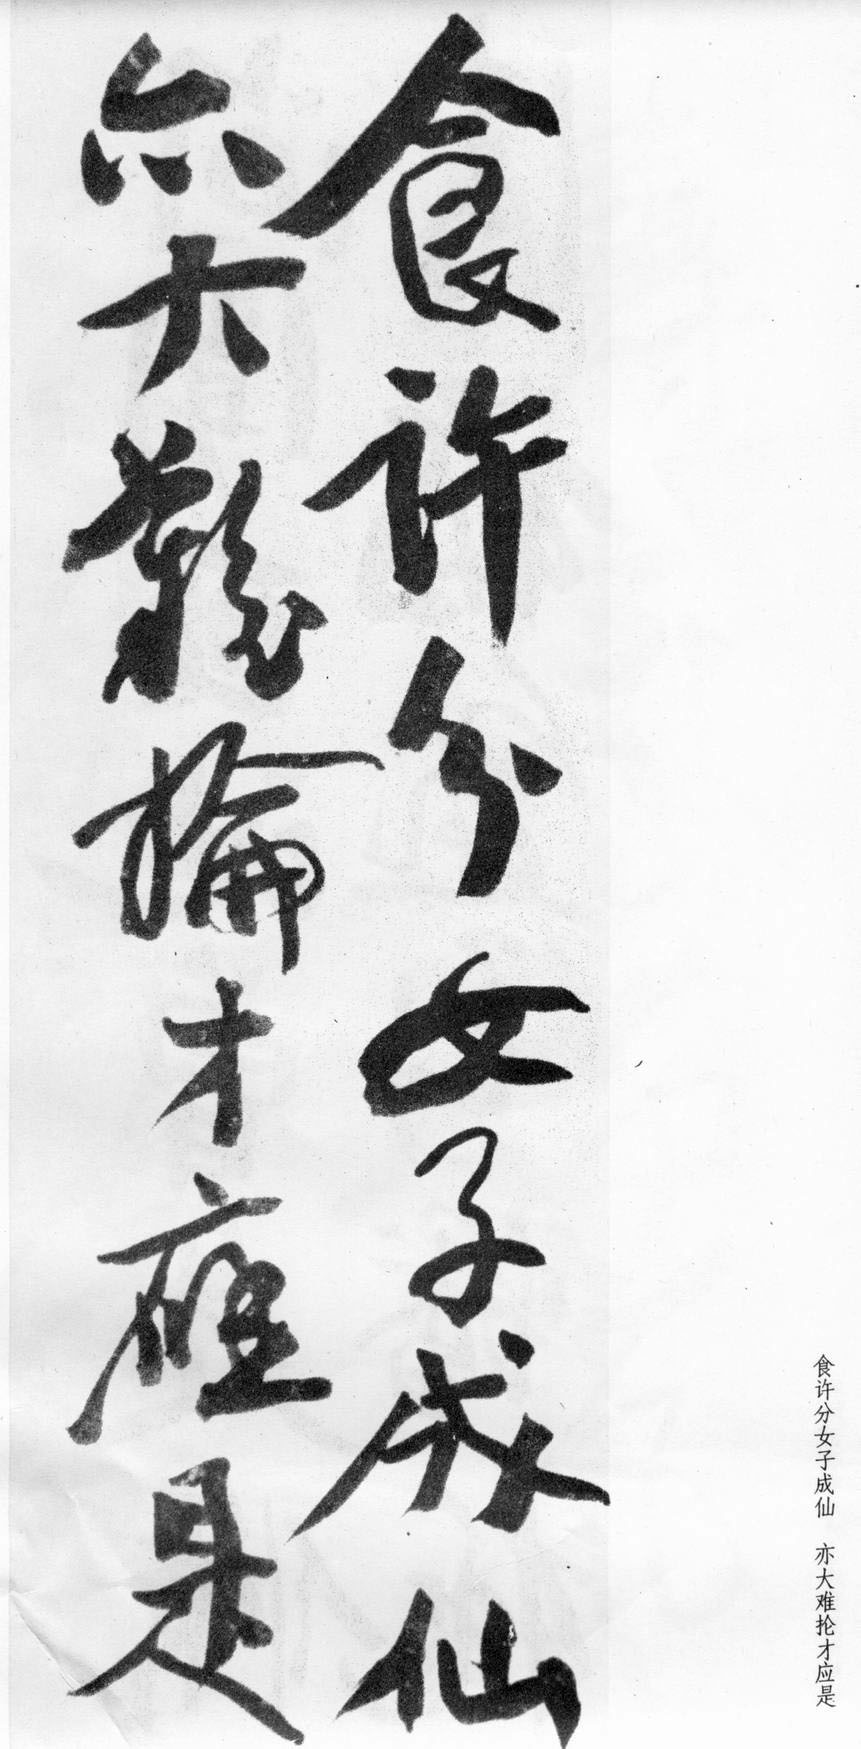 食許分女子成仙
亦大難掄才應是
食许分女子成仙 亦大难抡才应是